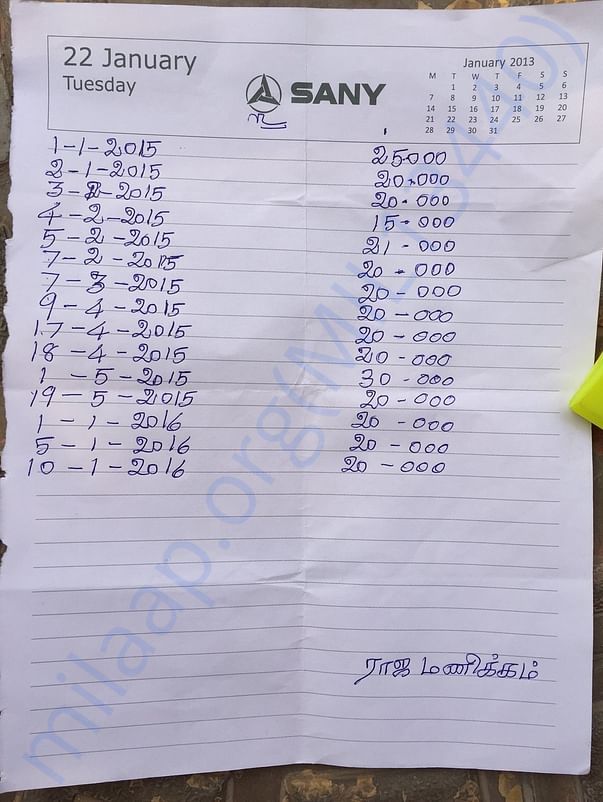 22 January
Tuesday
SANY
January 2013
M T W T F S S
1 2 3 4 5 6
7 8 9 10 11 12 13
14 15 16 17 18 19 20
21 22 23 24 25 26 27
28 29 30 31
1-1-2015 25-000
2-1-2015 20-000
3-2-2015 20-000
4-2-2015 15-000
5-2-2015 21-000
7-2-2015 20-000
7-3-2015 20-000
9-4-2015 20-000
17-4-2015 20-000
18-4-2015 20-000
1-5-2015 30-000
19-5-2015 20-000
1-1-2016 20-000
5-1-2016 20-000
10-1-2016 20-000
ராஜ மணிக்கம்